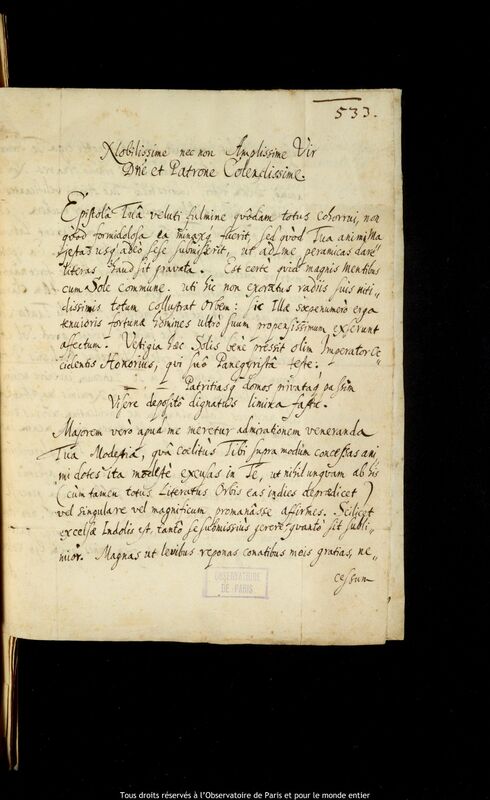 533.
Nobilissime nec non Amplissime Vir
Dñe et Patrone Colendissime.
Epistolâ Tuâ veluti fulmine quôdam totus cohorrui, non
quod formidolosa ea fuerit, sed quòd Tua animi Ma
jetas usq; adeò sese submiserit, ut ad me peramicas dare
literas haud sit gravata. Est certè quid magnis Mentibus
cum Sole commune. uti hic non exoratus radiis suis niti-
dissimis totum collustrat orbem: sic Illæ sæpenumerò erga
tenuioris fortunæ homines ultrò suum propensissimum exerunt
affectum. Vestigia hæc Solis benè pressit olim Imperator Oc-
cidentis Honorius, qui suô Panegyristâ teste.
Patritiasq; domos privataq; passim
Visere depositô dignatus limina fastu.
Majorem verò apud me meretur admirationem veneranda
Tua Modestia, quâ coelitus Tibi supra modum concessas ani
mi dotes ita modestè excusas in Te, ut nihil unquam ab his
(cum tamen totus Literatus Orbis eas indies deprædicet)
vel singulare vel magnificum promanâsse affirmes. Scilicet
excelsæ Indolis est, tantò se submissius gerere, quantò sit subli-
mior. Magnas ut levibus reponas conatibus meis gratias, ne-
cessum
OBSERVATOIRE
DE PARIS
Tous droits réservés à l'Observatoire de Paris et pour le monde entier